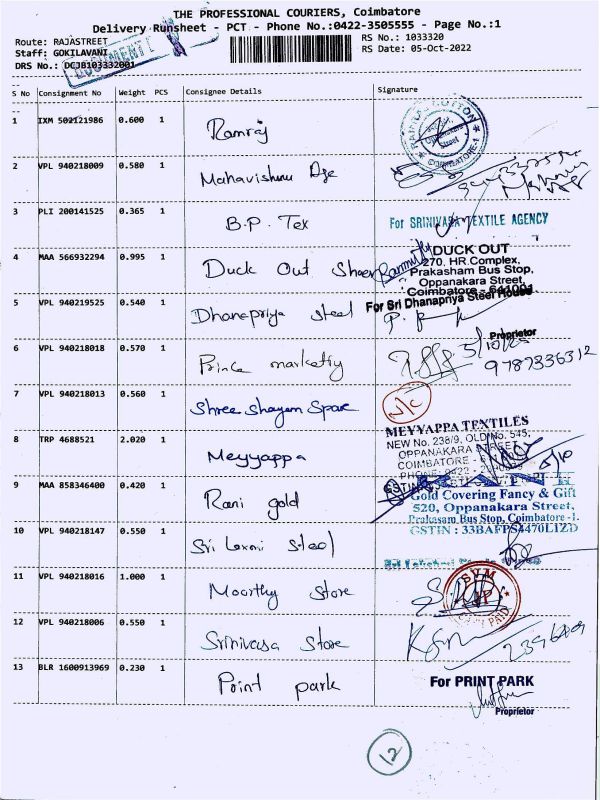 THE PROFESSIONAL COURIERS, Coimbatore
Delivery Runsheet - PCT - Phone No.:0422-3505555 - Page No.:1
Route: RAJASTREET RS No.: 1033320
Staff: GOKILAVANI RS Date: 05-Oct-2022
DRS No.: DCJ8103332001
DOCUMENT
S No Consignment No Weight PCS Consignee Details Signature
1 IXM 502121986 0.600 1 Ramraj
COIMBATORE-1
Oppanakara
Street
2 VPL 940218009 0.580 1 Mahavishnu Dye
3 PLI 200141525 0.365 1 B.P. Tex For SRINIVASA TEXTILE AGENCY
4 MAA 566932294 0.995 1 Duck Out Sheer
DUCK OUT
270, HR.Complex,
Prakasham Bus Stop,
Oppanakara Street,
Coimbatore - 641001
5 VPL 940219525 0.540 1 Dhanapriya steel For Sri Dhanapriya Steel House
Proprietor
6 VPL 940218018 0.570 1 Prince marketty 5/10/22
9787336312
7 VPL 940218013 0.560 1 Shree Shayam Spare
8 TRP 4688521 2.020 1 Meyyappa
MEYYAPPA TEXTILES
NEW No. 238/9, OLD No. 545,
OPPANAKARA STREET
COIMBATORE -
PHONE: 0422 -
GSTIN
5/10
9 MAA 858346400 0.420 1 Rani gold
Gold Covering Fancy & Gift
520, Oppanakara Street,
Prakasam Bus Stop, Coimbatore -1.
GSTIN : 33BAFPS4470L1ZD
10 VPL 940218147 0.550 1 Sri Laxmi Steel
11 VPL 940218016 1.000 1 Moorthy Store
SVM
12 VPL 940218006 0.550 1 Srinivasa Store
13 BLR 1600913969 0.230 1 Print park For PRINT PARK
Proprietor
12